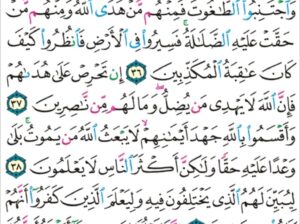 وَٱجْتَنِبُوا۟ ٱلطَّٰغُوتَ فَمِنْهُم مَّنْ هَدَى ٱللَّهُ وَمِنْهُم مَّنْ
حَقَّتْ عَلَيْهِ ٱلضَّلَٰلَةُ فَسِيرُوا۟ فِى ٱلْأَرْضِ فَٱنظُرُوا۟ كَيْفَ
كَانَ عَٰقِبَةُ ٱلْمُكَذِّبِينَ ٣٦ إِن تَحْرِصْ عَلَىٰ هُدَىٰهُمْ
فَإِنَّ ٱللَّهَ لَا يَهْدِى مَن يُضِلُّ وَمَا لَهُم مِّن نَّٰصِرِينَ ٣٧
وَأَقْسَمُوا۟ بِٱللَّهِ جَهْدَ أَيْمَٰنِهِمْ لَا يَبْعَثُ ٱللَّهُ مَن يَمُوتُ بَلَىٰ
وَعْدًا عَلَيْهِ حَقًّا وَلَٰكِنَّ أَكْثَرَ ٱلنَّاسِ لَا يَعْلَمُونَ ٣٨
لِيُبَيِّنَ لَهُمُ ٱلَّذِى يَخْتَلِفُونَ فِيهِ وَلِيَعْلَمَ ٱلَّذِينَ كَفَرُوٓا۟ أَنَّهُمْ